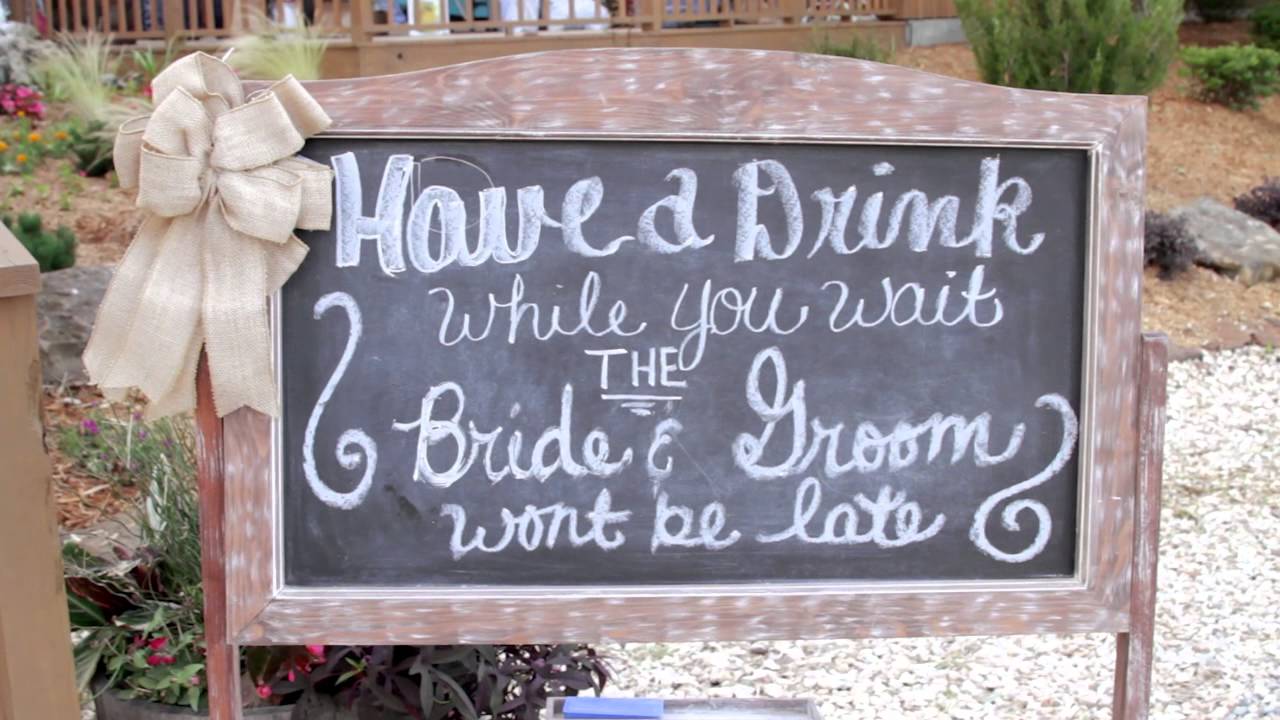 Have a Drink
while you wait
THE
Bride & Groom
wont be late